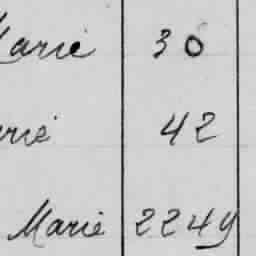 Marie 30
42
Marie 2249